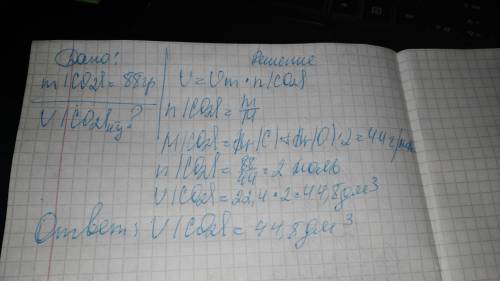 Дано:
m(CO2)=88гр
V(CO2)н.у.?
Решение
V=Vm·n(CO2)
n(CO2)=m/M
M(CO2)=Ar(C)+Ar(O)·2=44г/моль
n(CO2)=88/44=2 моль
V(CO2)=22,4·2=44,8дм³
Ответ: V(CO2)=44,8дм³